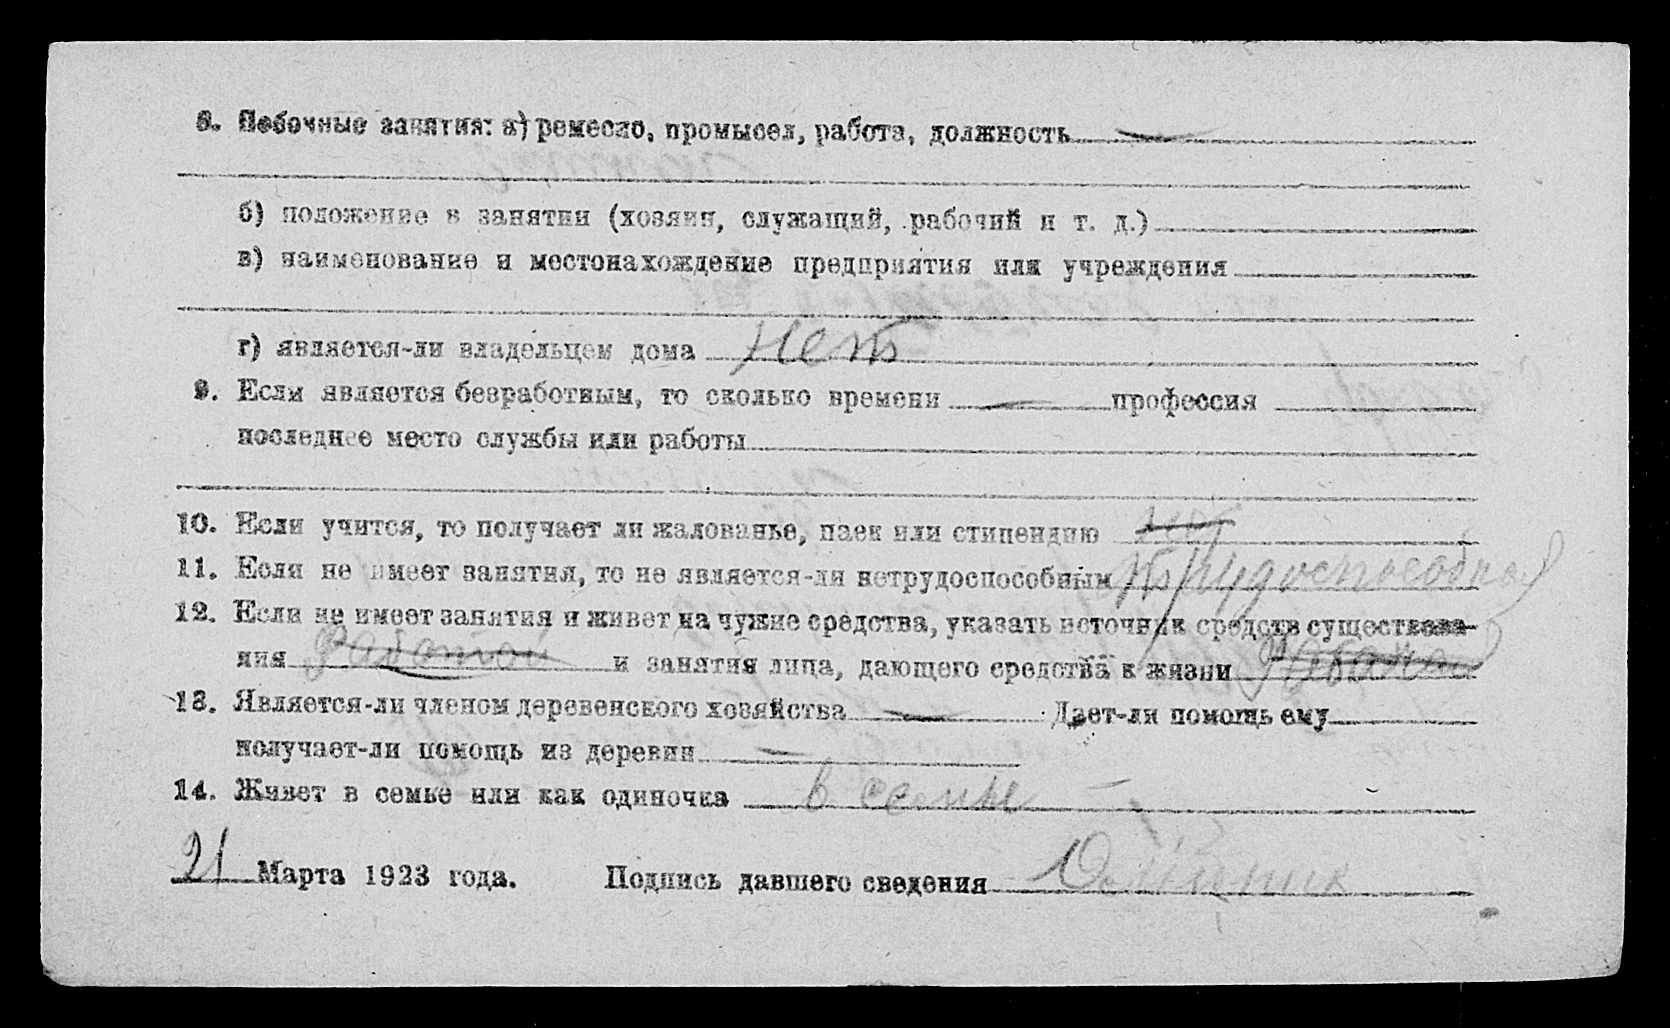 8. Побочные занятия: а) ремесло, промысел, работа, должность —
б) положение в занятии (хозяин, служащий, рабочий и т. д.)
в) наименование и местонахождение предприятия или учреждения
г) является-ли владельцем дома нет
9. Если является безработным, то сколько времени — профессия
последнее место службы или работы
10. Если учится, то получает ли жалованье, паек или стипендию нет
11. Если не имеет занятия, то не является-ли нетрудоспособным трудоспособная
12. Если не имеет занятия и живет на чужие средства, указать источник средств существова-
ния работой и занятия лица, дающего средства к жизни
13. Является-ли членом деревенского хозяйства — Дает-ли помощь ему
получает-ли помощь из деревни —
14. Живет в семье или как одиночка в семье —
21 Марта 1923 года. Подпись давшего сведения